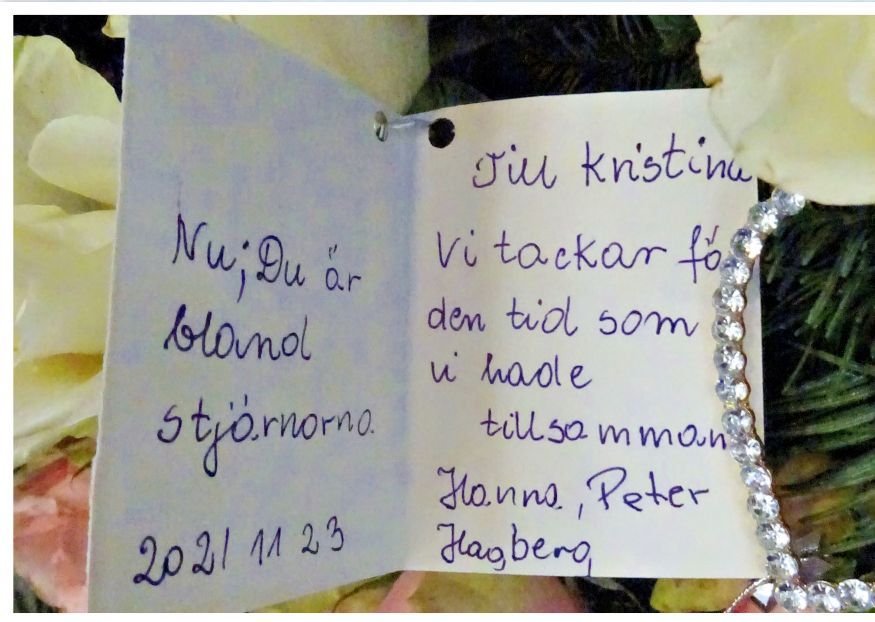 Nu; Du är
bland
stjärnorna
2021 11 23
Till Kristina
Vi tackar fö
den tid som
vi hade
tillsamman
Hanna, Peter
Hagberg